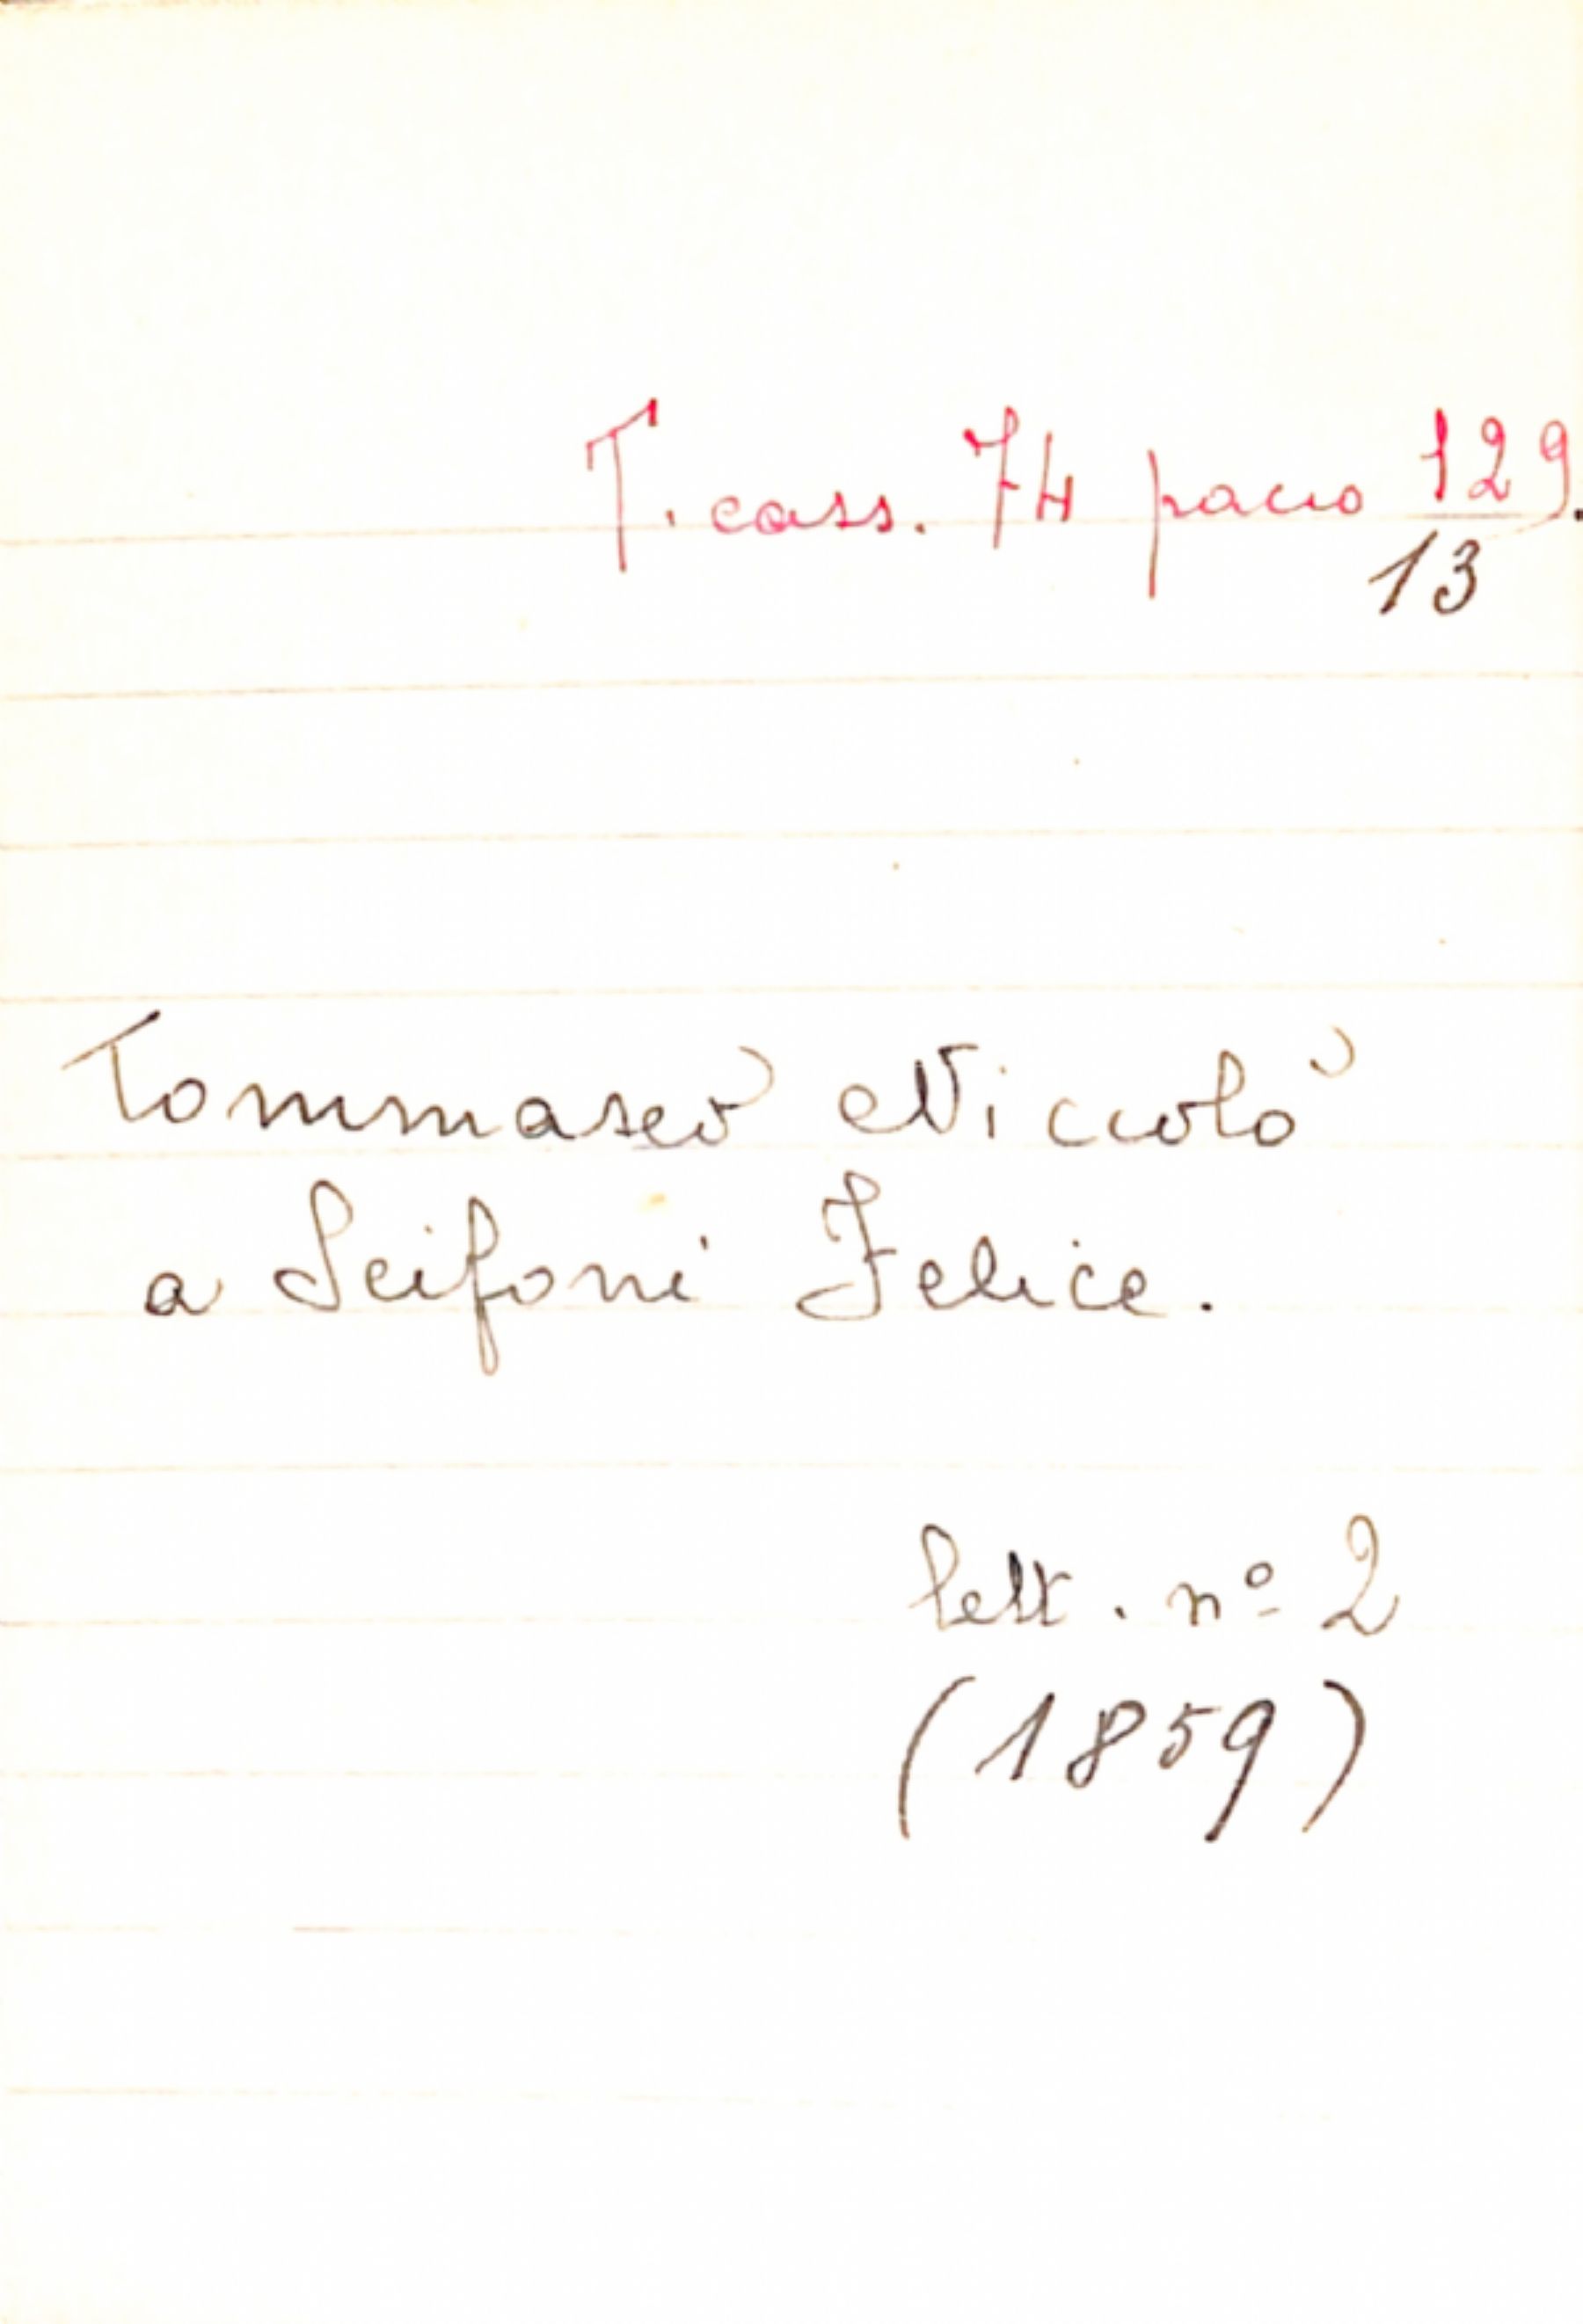 T. cass. 74 pacco 129.
13
Tommaseo Niccolò
a Scifoni Felice.
lett. nº 2
(1859)